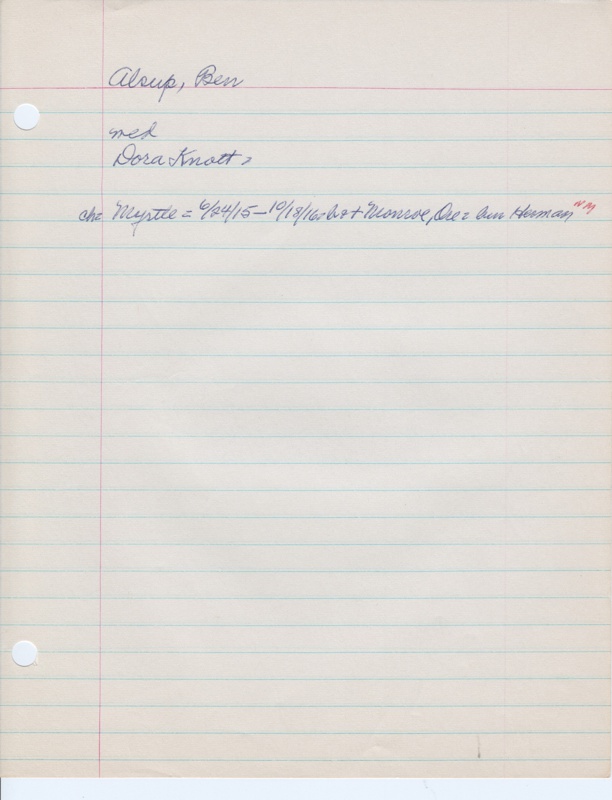 Alsup, Ben
med
Dora Knott =
ch= Myrtle = 6/24/15 - 10/18/16 = b + Monroe, Ore = bur Herman "M